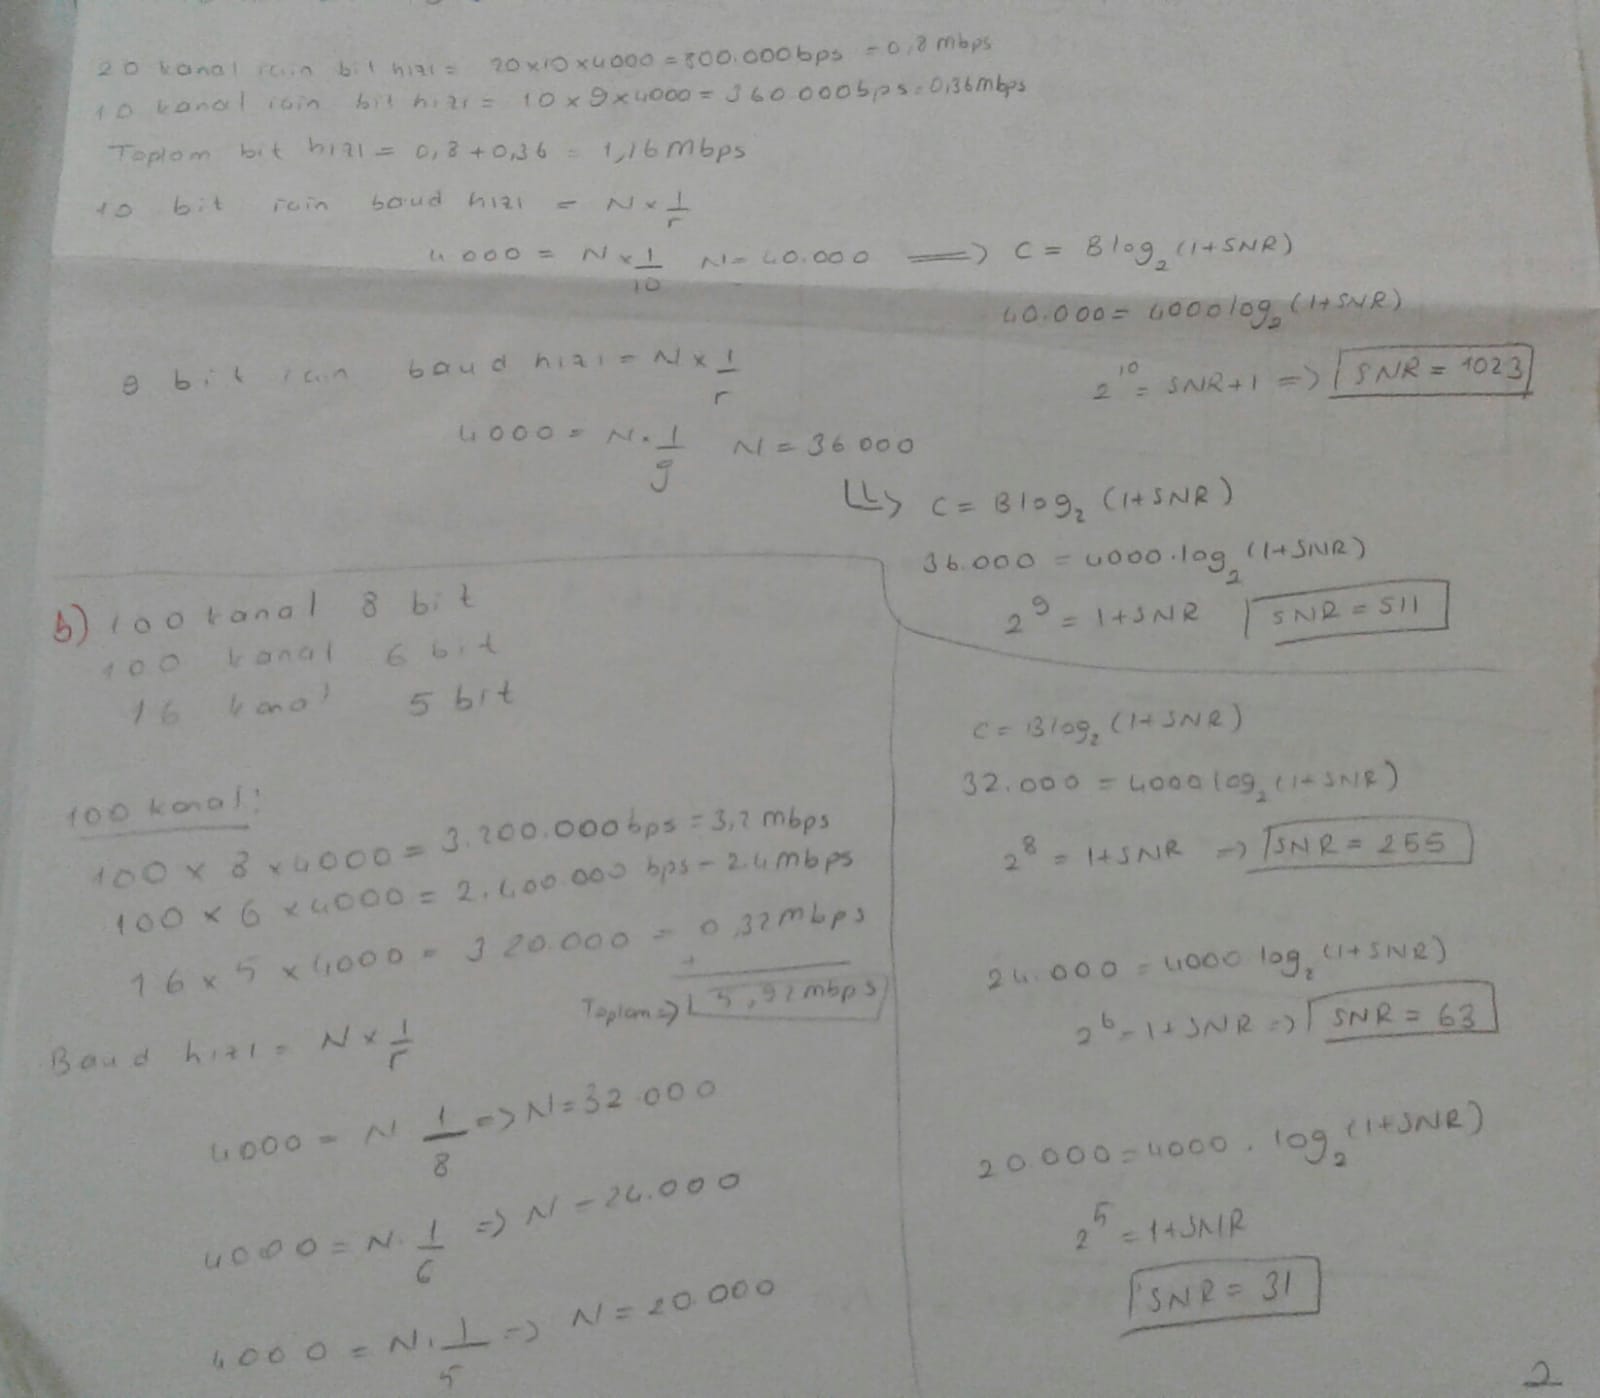 20 kanal icin bit hızı = 20x10x4000 = 800.000bps = 0,8 mbps
10 kanal icin bit hızı = 10 x 9 x 4000 = 360.000bps = 0,36mbps
Toplam bit hızı = 0,8 + 0,36 = 1,16 mbps
10 bit icin baud hızı = N x 1/r
4000 = N x 1/10 N = 40.000 => C = Blog₂(1+SNR)
40.000 = 4000log₂(1+SNR)
2¹⁰ = SNR+1 => SNR = 1023
9 bit icin baud hızı = N x 1/r
4000 = N . 1/9 N = 36000
C = Blog₂ (1+SNR)
36.000 = 4000.log₂(1+SNR)
2⁹ = 1+SNR SNR = 511
b) 100 kanal 8 bit
100 kanal 6 bit
16 kanal 5 bit
100 kanal:
100 x 8 x 4000 = 3.200.000bps = 3,2 mbps
100 x 6 x 4000 = 2.400.000 bps = 2.4mbps
16 x 5 x 4000 = 320.000 = 0,32mbps
+
Toplam => 5,92mbps
Baud hızı = N x 1/r
4000 = N 1/8 => N = 32.000
4000 = N. 1/6 => N = 24.000
4000 = N. 1/5 => N = 20.000
C = Blog₂ (1+SNR)
32.000 = 4000log₂(1+SNR)
2⁸ = 1+SNR => SNR = 255
24.000 = 4000 log₂(1+SNR)
2⁶ = 1+SNR => SNR = 63
20.000 = 4000 . log₂(1+SNR)
2⁵ = 1+SNR
SNR = 31
2